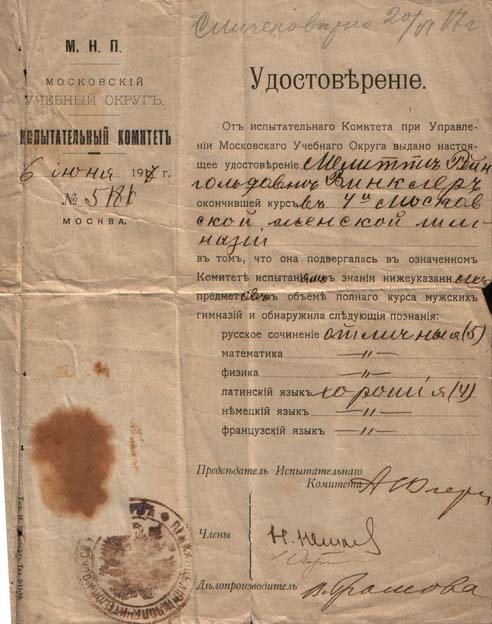 М. Н. П.
МОСКОВСКІЙ
УЧЕБНЫЙ ОКРУГЪ.
ИСПЫТАТЕЛЬНЫЙ КОМИТЕТЪ
6 іюня 1917 г.
№ 5181
МОСКВА.
20/VI 17 г
Удостовѣреніе.
Отъ испытательнаго Комитета при Управле-
ніи Московскаго Учебнаго Округа выдано настоя-
щее удостовѣреніе Мелиттѣ Вейн
гольдовнѣ Винклеръ
окончившей курсъ въ 4й Москов
ской женской гим
назіи
въ томъ, что она подвергалась въ означенномъ
Комитетѣ испытаніямъ въ знаніи нижеуказанныхъ
предметовъ въ объемѣ полнаго курса мужскихъ
гимназій и обнаружила слѣдующія познанія:
русское сочиненіе отличныя (5)
математика —〃—
физика —〃—
латинскій языкъ хорошія (4)
нѣмецкій языкъ —〃—
французскій языкъ —〃—
Предсѣдатель Испытательнаго
Комитета
Члены
Дѣлопроизводитель